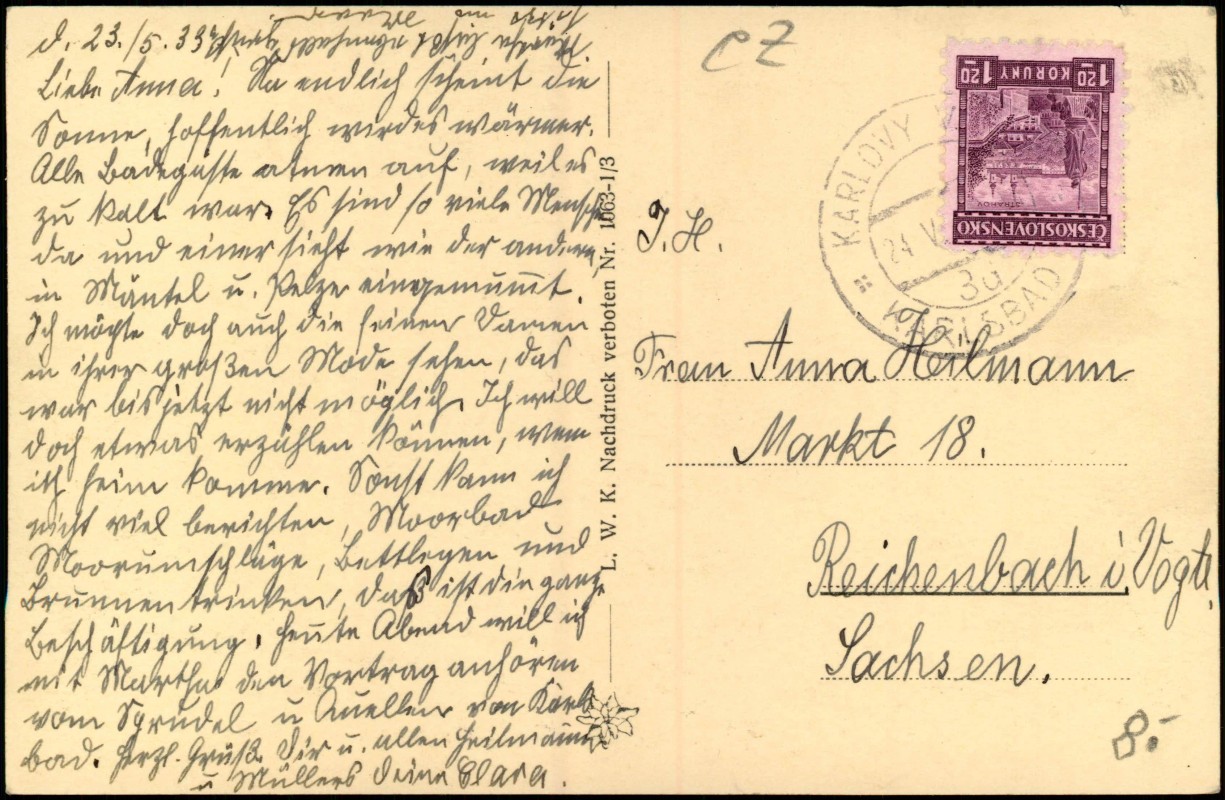 d. 23./5. 33
Liebe Anna! Na endlich scheint die
Sonne, hoffentlich wird es wärmer.
Alle Badegäste atmen auf, weil es
zu kalt war. Es sind so viele Mensch
da und einer sieht wie der andere
in Mäntel u. Pelze eingemummt.
Ich möchte doch auch die feinen Damen
in ihrer großen Mode sehen, das
war bis jetzt nicht möglich. Ich will
doch etwas erzählen können, wenn
ich heim komme. Sonst kann ich
nicht viel berichten, Moorbad
Moorumschläge, Bettlegen und
Brunnen trinken, daß ist die ganze
Beschäftigung. Heute Abend will ich
mit Martha den Vortrag anhören
vom Sprudel u Quellen von Karls
bad. Herzl. Gruß Dir u. allen Heilmanns
u Müllers Deine Clara.
L. W. K. Nachdruck verboten Nr. 1063-1/3
CZ
1·20 KORUNY 1·20
STRAHOV
ČESKOSLOVENSKO
KARLOVY
24 V
3a
KARLSBAD
I. H.
Frau Anna Heilmann
Markt 18.
Reichenbach i. Vogtl.
Sachsen.
8.-